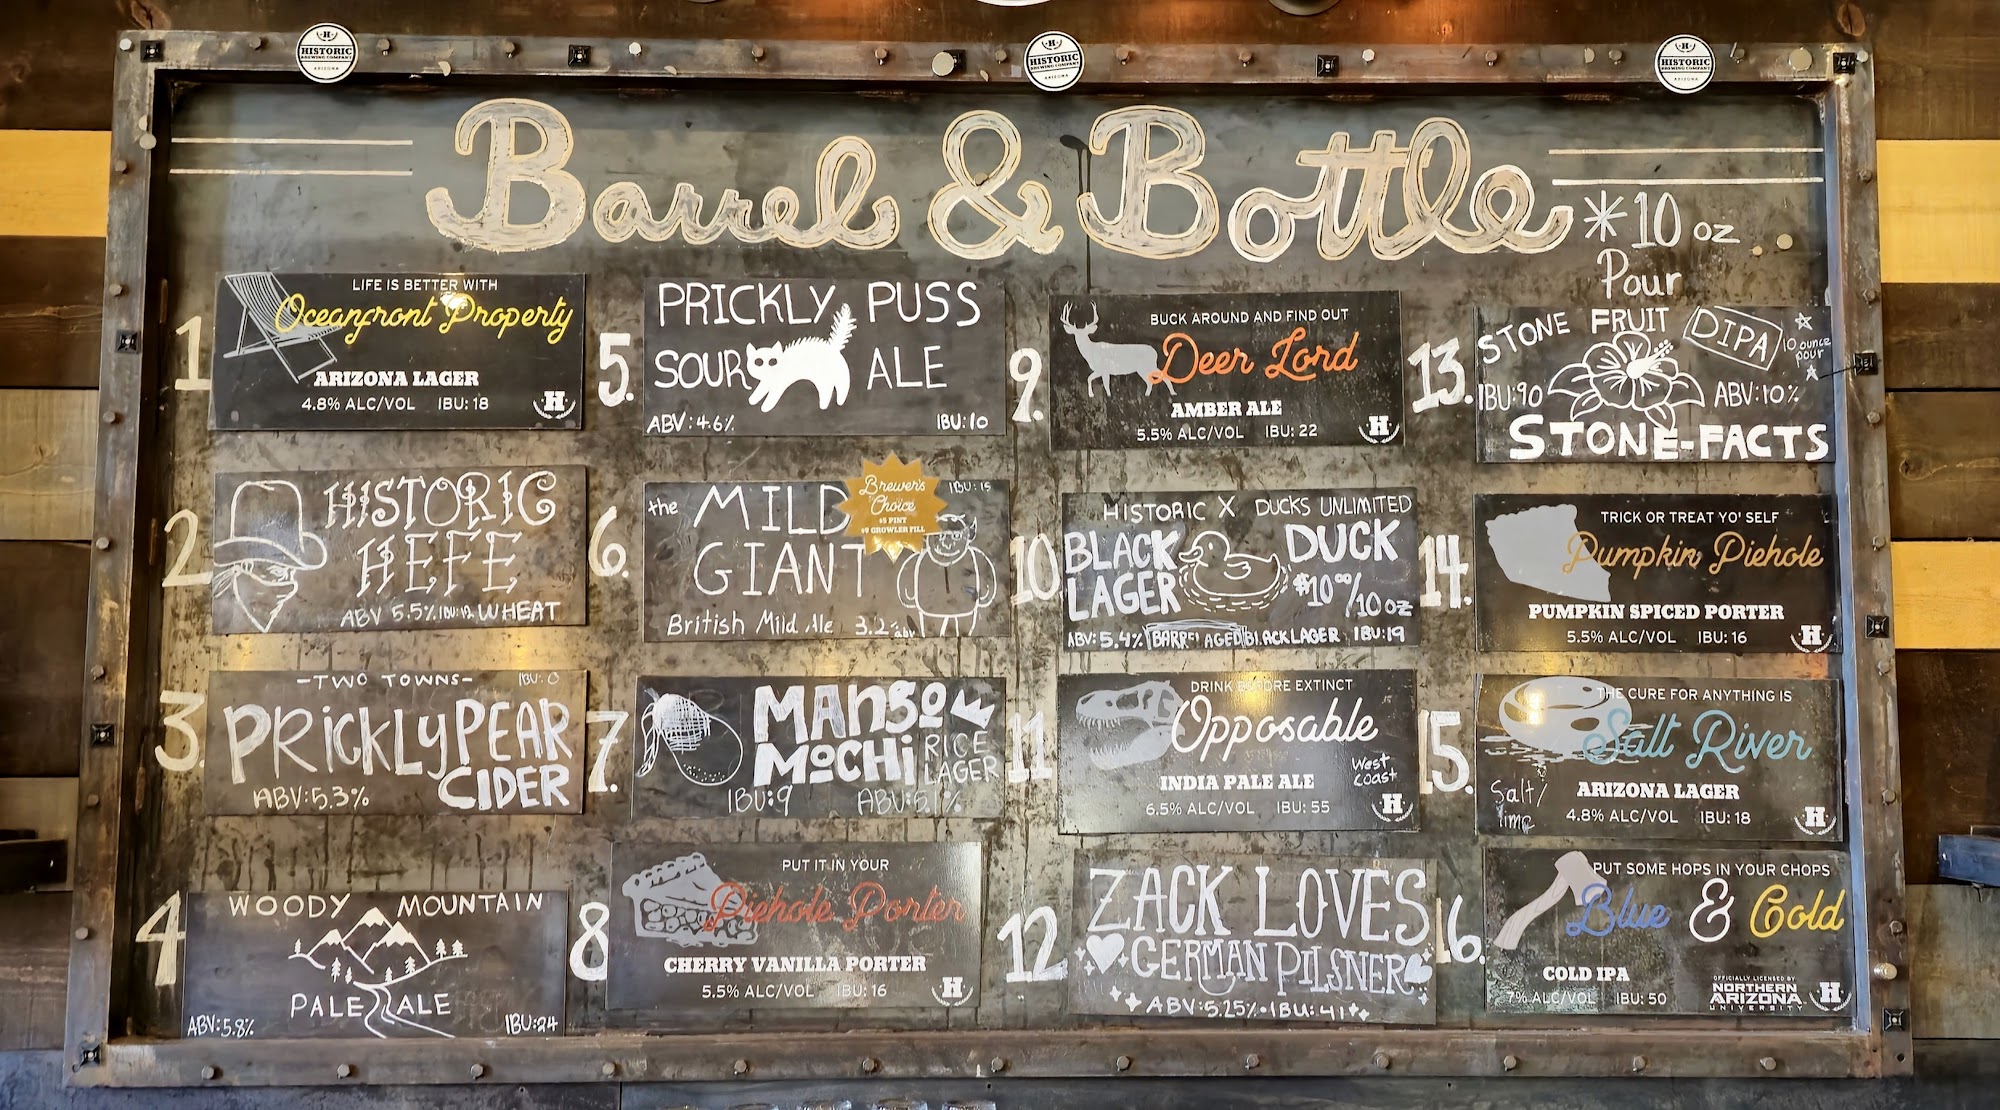 HISTORIC
BREWING COMPANY
ARIZONA
HISTORIC
BREWING COMPANY
ARIZONA
HISTORIC
BREWING COMPANY
ARIZONA
Barrel & Bottle
*10 oz
Pour
1
LIFE IS BETTER WITH
Oceanfront Property
ARIZONA LAGER
4.8% ALC/VOL IBU: 18
H
2
HISTORIC
HEFE
ABV 5.5% IBU:12 WHEAT
3.
-TWO TOWNS- IBU: 0
PRICKLY PEAR
CIDER
ABV:5.3%
4
WOODY MOUNTAIN
PALE ALE
ABV:5.8% IBU:24
5.
PRICKLY PUSS
SOUR ALE
ABV:4.6% IBU:10
6.
the MILD GIANT
IBU:15
Brewer's
Choice
$5 PINT
$9 GROWLER FILL
British Mild Ale 3.2% abv
7.
MANGO
MOCHI
RICE
LAGER
IBU:9 ABV:5.1%
8
PUT IT IN YOUR
Piehole Porter
CHERRY VANILLA PORTER
5.5% ALC/VOL IBU: 16
H
9.
BUCK AROUND AND FIND OUT
Deer Lord
AMBER ALE
5.5% ALC/VOL IBU: 22
H
10
HISTORIC X DUCKS UNLIMITED
BLACK
LAGER
DUCK
$10.00/10oz
ABV: 5.4% BARREL AGED BLACK LAGER IBU:19
11
DRINK BEFORE EXTINCT
Opposable
West
Coast
INDIA PALE ALE
6.5% ALC/VOL IBU: 55
H
12
ZACK LOVES
GERMAN PILSNER
ABV:5.25% • IBU:41
13.
STONE FRUIT DIPA
10 ounce
pour
IBU:90 ABV:10%
STONE-FACTS
14.
TRICK OR TREAT YO' SELF
Pumpkin Piehole
PUMPKIN SPICED PORTER
5.5% ALC/VOL IBU: 16
H
15.
THE CURE FOR ANYTHING IS
Salt River
Salt/
lime
ARIZONA LAGER
4.8% ALC/VOL IBU: 18
H
16.
PUT SOME HOPS IN YOUR CHOPS
Blue & Gold
COLD IPA
7% ALC/VOL IBU: 50
OFFICIALLY LICENSED BY
NORTHERN
ARIZONA
UNIVERSITY
H